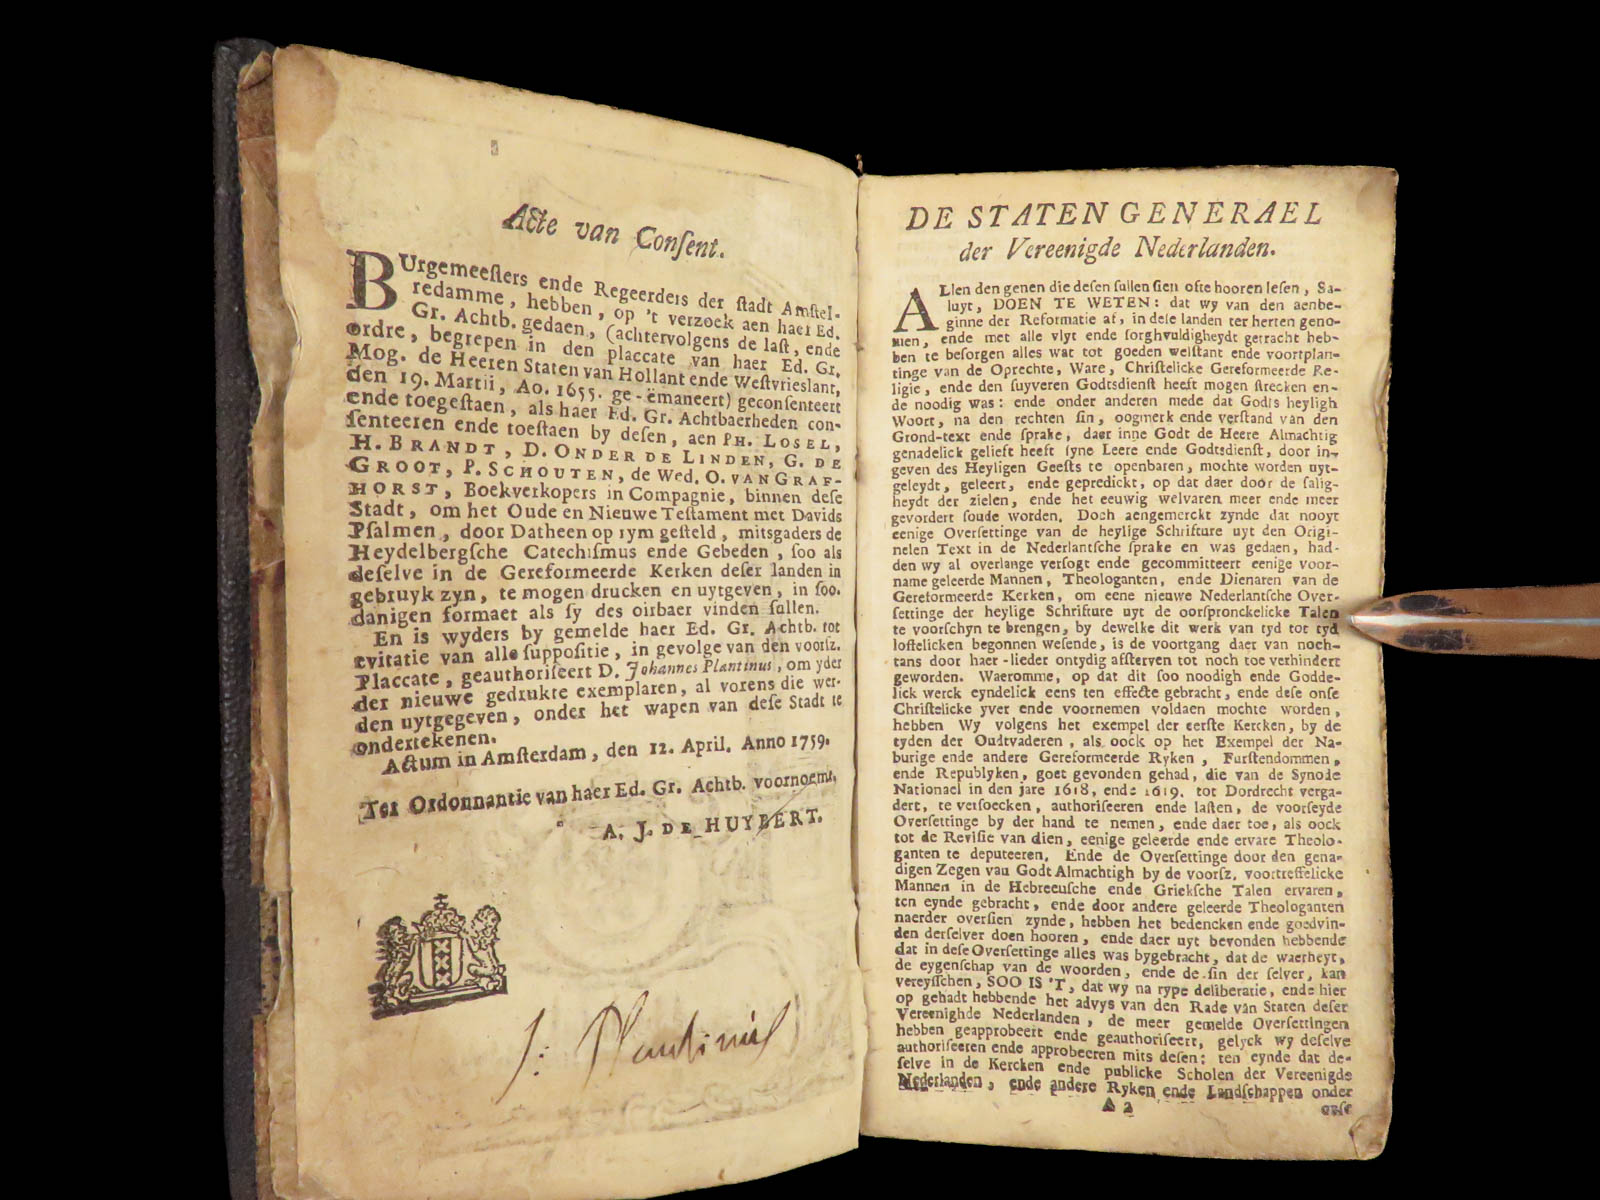 Acte van Conſent.
BUrgemeeſters ende Regeerders der ſtadt Amſtel-
redamme, hebben, op 't verzoek aen haer Ed.
Gr. Achtb. gedaen, (achtervolgens de laſt, ende
ordre, begrepen in den placcate van haer Ed. Gr.
Mog. de Heeren Staten van Hollant ende Weſtvrieslant,
den 19. Martii, Ao. 1655. ge-ëmaneert) geconſenteert
ende toegeſtaen, als haer Ed. Gr. Achtbaerheden con-
ſenteeren ende toeſtaen by deſen, aen PH. LOSEL,
H. BRANDT, D. ONDER DE LINDEN, G. DE
GROOT, P. SCHOUTEN, de Wed. O. VAN GRAF-
HORST, Boekverkopers in Compagnie, binnen deſe
Stadt, om het Oude en Nieuwe Teſtament met Davids
Pſalmen, door Datheen op rym geſteld, mitsgaders de
Heydelbergſche Catechiſmus ende Gebeden, ſoo als
deſelve in de Gereformeerde Kerken deſer landen in
gebruyk zyn, te mogen drucken en uytgeven, in ſoo.
danigen formaet als ſy des oirbaer vinden ſullen.
En is wyders by gemelde haer Ed. Gr. Achtb. tot
evitatie van alle ſuppoſitie, in gevolge van den voorſz.
Placcate, geauthoriſeert D. Johannes Plantinus, om yder
der nieuwe gedrukte exemplaren, al vorens die wer-
den uytgegeven, onder het wapen van deſe Stadt te
ondertekenen.
Actum in Amſterdam, den 12. April. Anno 1759.
Ter Ordonnantie van haer Ed. Gr. Achtb. voornoemt,
A. J. DE HUYBERT.
J: Plantinus
DE STATEN GENERAEL
der Vereenigde Nederlanden.
ALlen den genen die deſen ſullen ſien ofte hooren leſen, Sa-
luyt, DOEN TE WETEN: dat wy van den aenbe-
ginne der Reformatie af, in deſe landen ter herten geno-
men, ende met alle vlyt ende ſorghvuldigheydt getracht heb-
ben te beſorgen alles wat tot goeden welſtant ende voortplan-
tinge van de Oprechte, Ware, Chriſtelicke Gereformeerde Re-
ligie, ende den ſuyveren Godtsdienſt heeft mogen ſtrecken en-
de noodig was: ende onder anderen mede dat Godts heyligh
Woort, na den rechten ſin, oogmerk ende verſtand van den
Grond-text ende ſprake, daer inne Godt de Heere Almachtig
genadelick gelieft heeft ſyne Leere ende Godtsdienſt, door in-
geven des Heyligen Geeſts te openbaren, mochte worden uyt-
geleydt, geleert, ende gepredickt, op dat daer door de ſalig-
heydt der zielen, ende het eeuwig welvaren meer ende meer
gevordert ſoude worden. Doch aengemerckt zynde dat nooyt
eenige Overſettinge van de heylige Schrifture uyt den Origi-
nelen Text in de Nederlantſche ſprake en was gedaen, had-
den wy al overlange verſogt ende gecommitteert eenige voor-
name geleerde Mannen, Theologanten, ende Dienaren van de
Gereformeerde Kerken, om eene nieuwe Nederlantſche Over-
ſettinge der heylige Schrifture uyt de oorſpronckelicke Talen
te voorſchyn te brengen, by dewelke dit werk van tyd tot tyd
loffelicken begonnen weſende, is de voortgang daer van noch-
tans door haer-lieder ontydig afſterven tot noch toe verhindert
geworden. Waeromme, op dat dit ſoo noodigh ende Godde-
lick werck eyndelick eens ten effecte gebracht, ende deſe onſe
Chriſtelicke yver ende voornemen voldaen mochte worden,
hebben Wy volgens het exempel der eerſte Kercken, by de
tyden der Oudtvaderen, als oock op het Exempel der Na-
burige ende andere Gereformeerde Ryken, Furſtendommen,
ende Republyken, goet gevonden gehad, die van de Synode
Nationael in den jare 1618, ende 1619. tot Dordrecht verga-
dert, te verſoecken, authoriſeeren ende laſten, de voorſeyde
Overſettinge by der hand te nemen, ende daer toe, als oock
tot de Reviſie van dien, eenige geleerde ende ervare Theolo-
ganten te deputeeren. Ende de Overſettinge door den gena-
digen Zegen van Godt Almachtigh by de voorſz. voortreffelicke
Mannen in de Hebreeuſche ende Griekſche Talen ervaren,
ten eynde gebracht, ende door andere geleerde Theologanten
naerder overſien zynde, hebben het bedencken ende goedvin-
den derſelver doen hooren, ende daer uyt bevonden hebbende
dat in deſe Overſettinge alles was bygebracht, dat de waerheyt,
de eygenſchap van de woorden, ende de ſin der ſelver, kan
vereyſſchen, SOO IS 'T, dat wy na rype deliberatie, ende hier
op gehadt hebbende het advys van den Rade van Staten deſer
Vereenighde Nederlanden, de meer gemelde Overſettingen
hebben geapprobeert ende geauthoriſeert, gelyck wy deſelve
authoriſeeren ende approbeeren mits deſen: ten eynde dat de-
ſelve in de Kercken ende publicke Scholen der Vereenigde
Nederlanden, ende andere Ryken ende Landſchappen onder
A 2 onſe